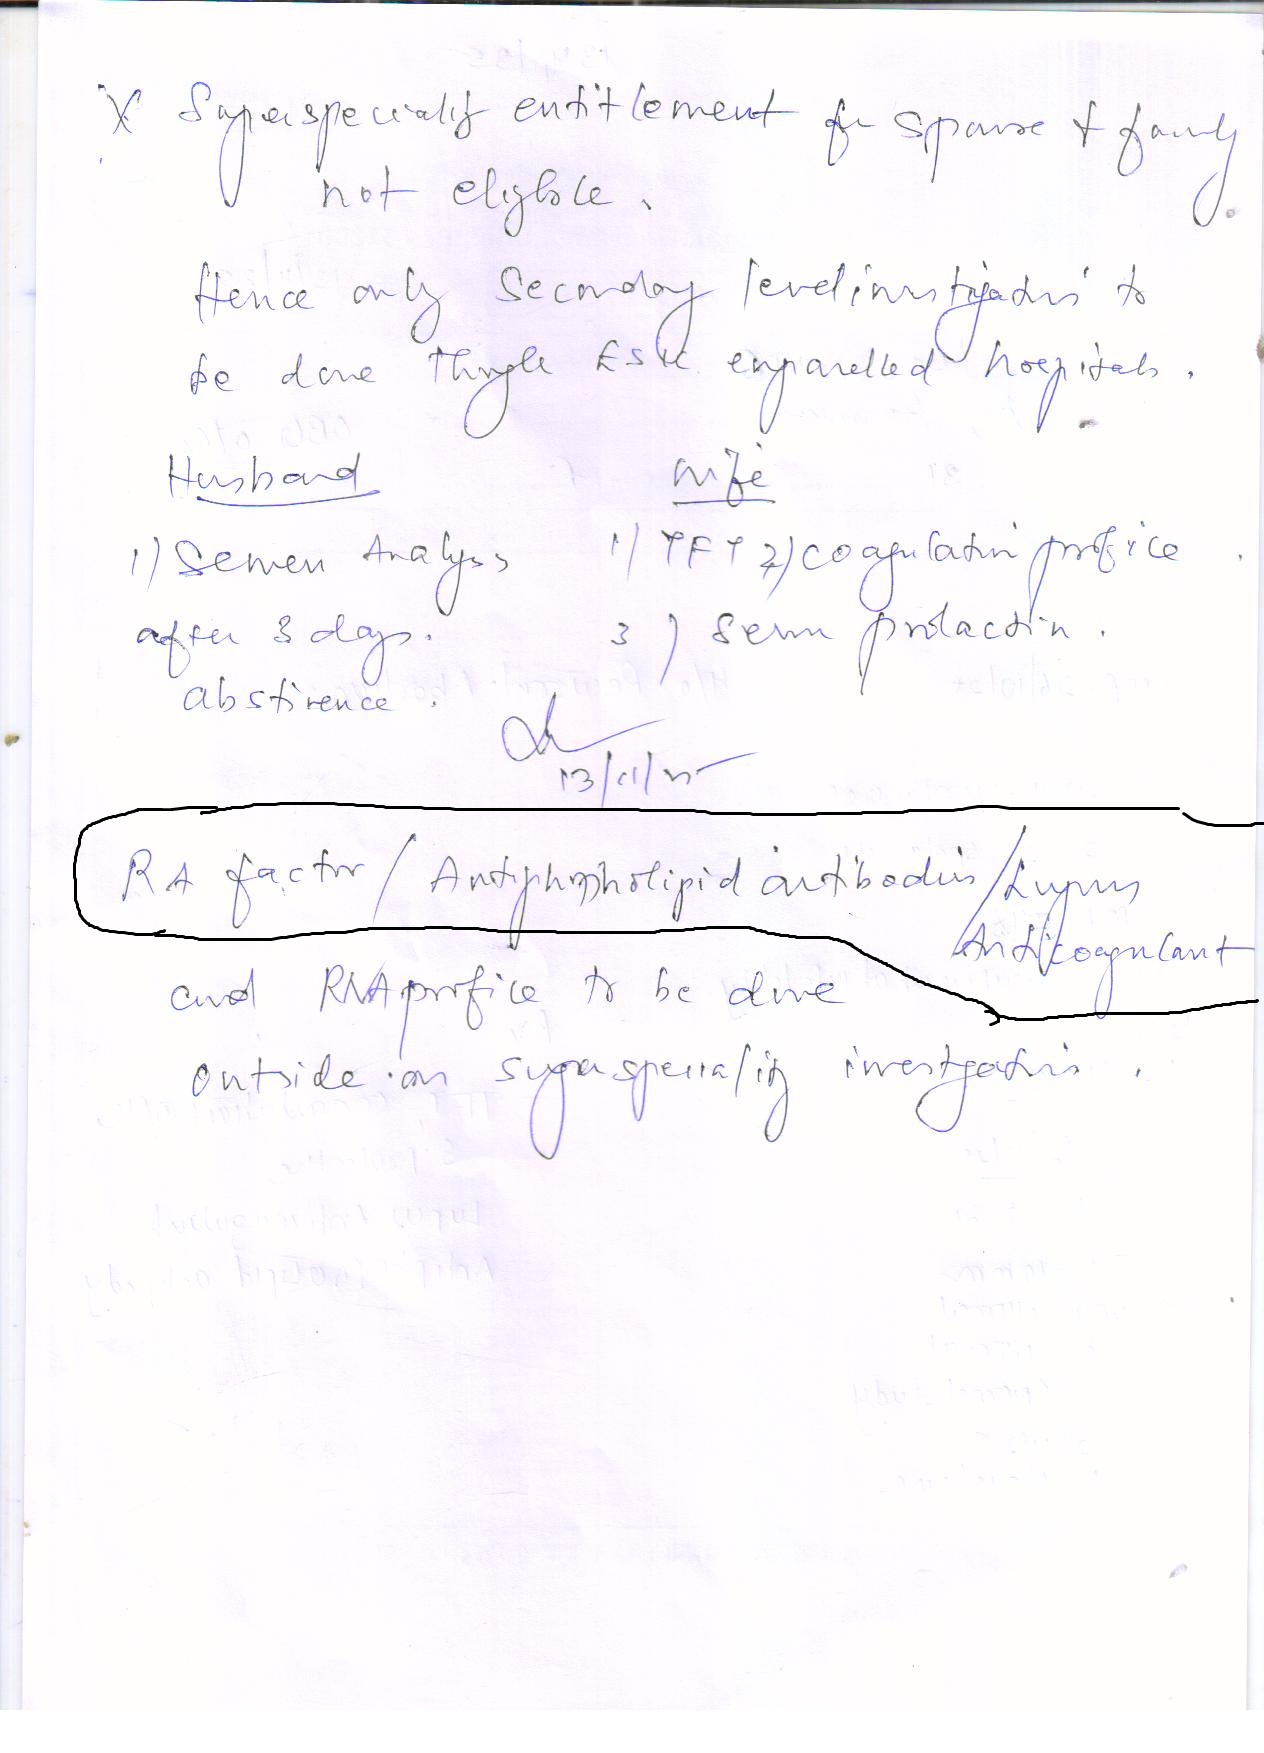 X Superspeciality entitlement for spouse & family
not eligible.
Hence only Secondary level investigations to
be done through ESIC empanelled hospitals.
Husband
Wife
1) Semen Analysis
after 3 days.
abstinence.
1) TFT 2) Coagulation profile.
3) Serum prolactin.
13/11/25
RA factor/ Antiphospholipid antibodies/Lupus
Anticoagulant
and RNA profile to be done
outside on superspeciality investigations.